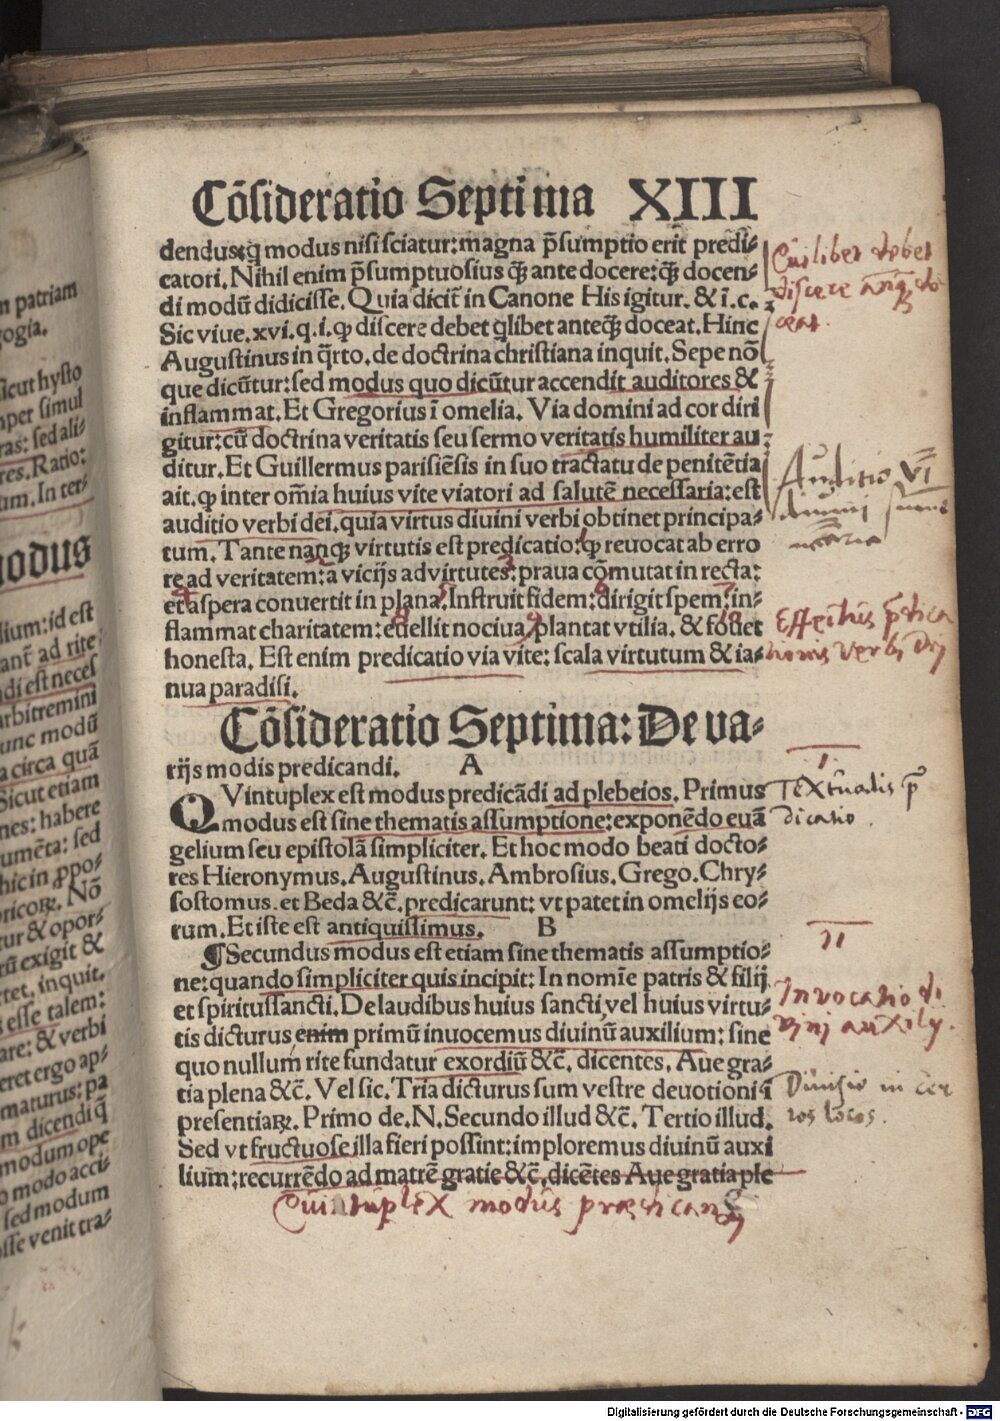 Cõsideratio Septima XIII
dendus:q̃ modus nisi sciatur:magna p̃sumptio erit predi⸗
catori. Nihil enim p̃sumptuosius q̃ꝫ ante docere:q̃ꝫ docen⸗
di modũ didicisse. Quia dicit̃ in Canone His igitur. & ĩ.c.
Sic viue. xvi. q. i. ꝙ discere debet q̃libet anteq̃ꝫ doceat. Hinc
Augustinus in q̃rto. de doctrina christiana inquit. Sepe nõ
que dicũtur:sed modus quo dicũtur accendit auditores &
inflammat. Et Gregorius ĩ omelia. Via domini ad cor diri
gitur:cũ doctrina veritatis seu sermo veritatis humiliter au⸗
ditur. Et Guillermus parisiẽsis in suo tractatu de penitẽtia
ait. ꝙ inter om̃ia huius vite viatori ad salutẽ necessaria:est
auditio verbi dei, quia virtus diuini verbi obtinet principa⸗
tum. Tante nanq̃ꝫ virtutis est predicatio:ꝙ reuocat ab erro
re ad veritatem:a vicijs ad virtutes: praua cõmutat in recta:
et aspera conuertit in plana. Instruit fidem:dirigit spem:in⸗
flammat charitatem: euellit nociua, plantat vtilia. & fouet
honesta. Est enim predicatio via vite: scala virtutum & ia⸗
nua paradisi.
Cõsideratio Septima: De va⸗
rijs modis predicandi. A
QVintuplex est modus predicãdi ad plebeios. Primus
modus est sine thematis assumptione:exponẽdo euã
gelium seu epistolã simpliciter. Et hoc modo beati docto⸗
res Hieronymus. Augustinus. Ambrosius. Grego. Chry⸗
sostomus. et Beda &c̃. predicarunt: vt patet in omelijs eo⸗
rum. Et iste est antiquissimus. B
¶Secundus modus est etiam sine thematis assumptio⸗
ne:quando simpliciter quis incipit: In nomĩe patris & filij
et spiritussancti. De laudibus huius sancti vel huius virtu⸗
tis dicturus enim primũ inuocemus diuinũ auxilium: sine
quo nullum rite fundatur exordiũ &c̃. dicentes. Aue gra⸗
tia plena &c̃. Vel sic. Tria dicturus sum vestre deuotioni
presentiaꝝ. Primo de. N. Secundo illud &c̃. Tertio illud.
Sed vt fructuose illa fieri possint:imploremus diuinũ auxi
lium:recurrẽdo ad matrẽ gratie &c̃. dicẽtes Aue gratia ple
Quintuplex modus praedicandi
Quilibet debet
discere anq̃ do
ceat.
Auditio VI
diuini summe
Effectus
verbi
I.
Textualis p̃
dicatio.
II
Inuocatio di
vini auxilij.
Diuisio in cer
tos locos.
n patriam
gogia.
sicut hysto
mper simul
ras: sed ali⸗
res. Ratio:
um. In ter⸗
odus
lium:id est
ant̃ ad rite
di est neces
arbitremini
unc modũ
a circa quã
Sicut etiam
nes: habere
umẽta: sed
hic in ꝓpo⸗
oricoꝝ. Nõ
tur & opor⸗
rũ exigit &
rtet. inquit.
s esse talem:
are: & verbi
eret ergo ap⸗
maturus: pa
m dicendi q̃
modum ope
o modo acci⸗
sed modum
osse venit tra⸗
Digitalisierung gefördert durch die Deutsche Forschungsgemeinschaft - DFG